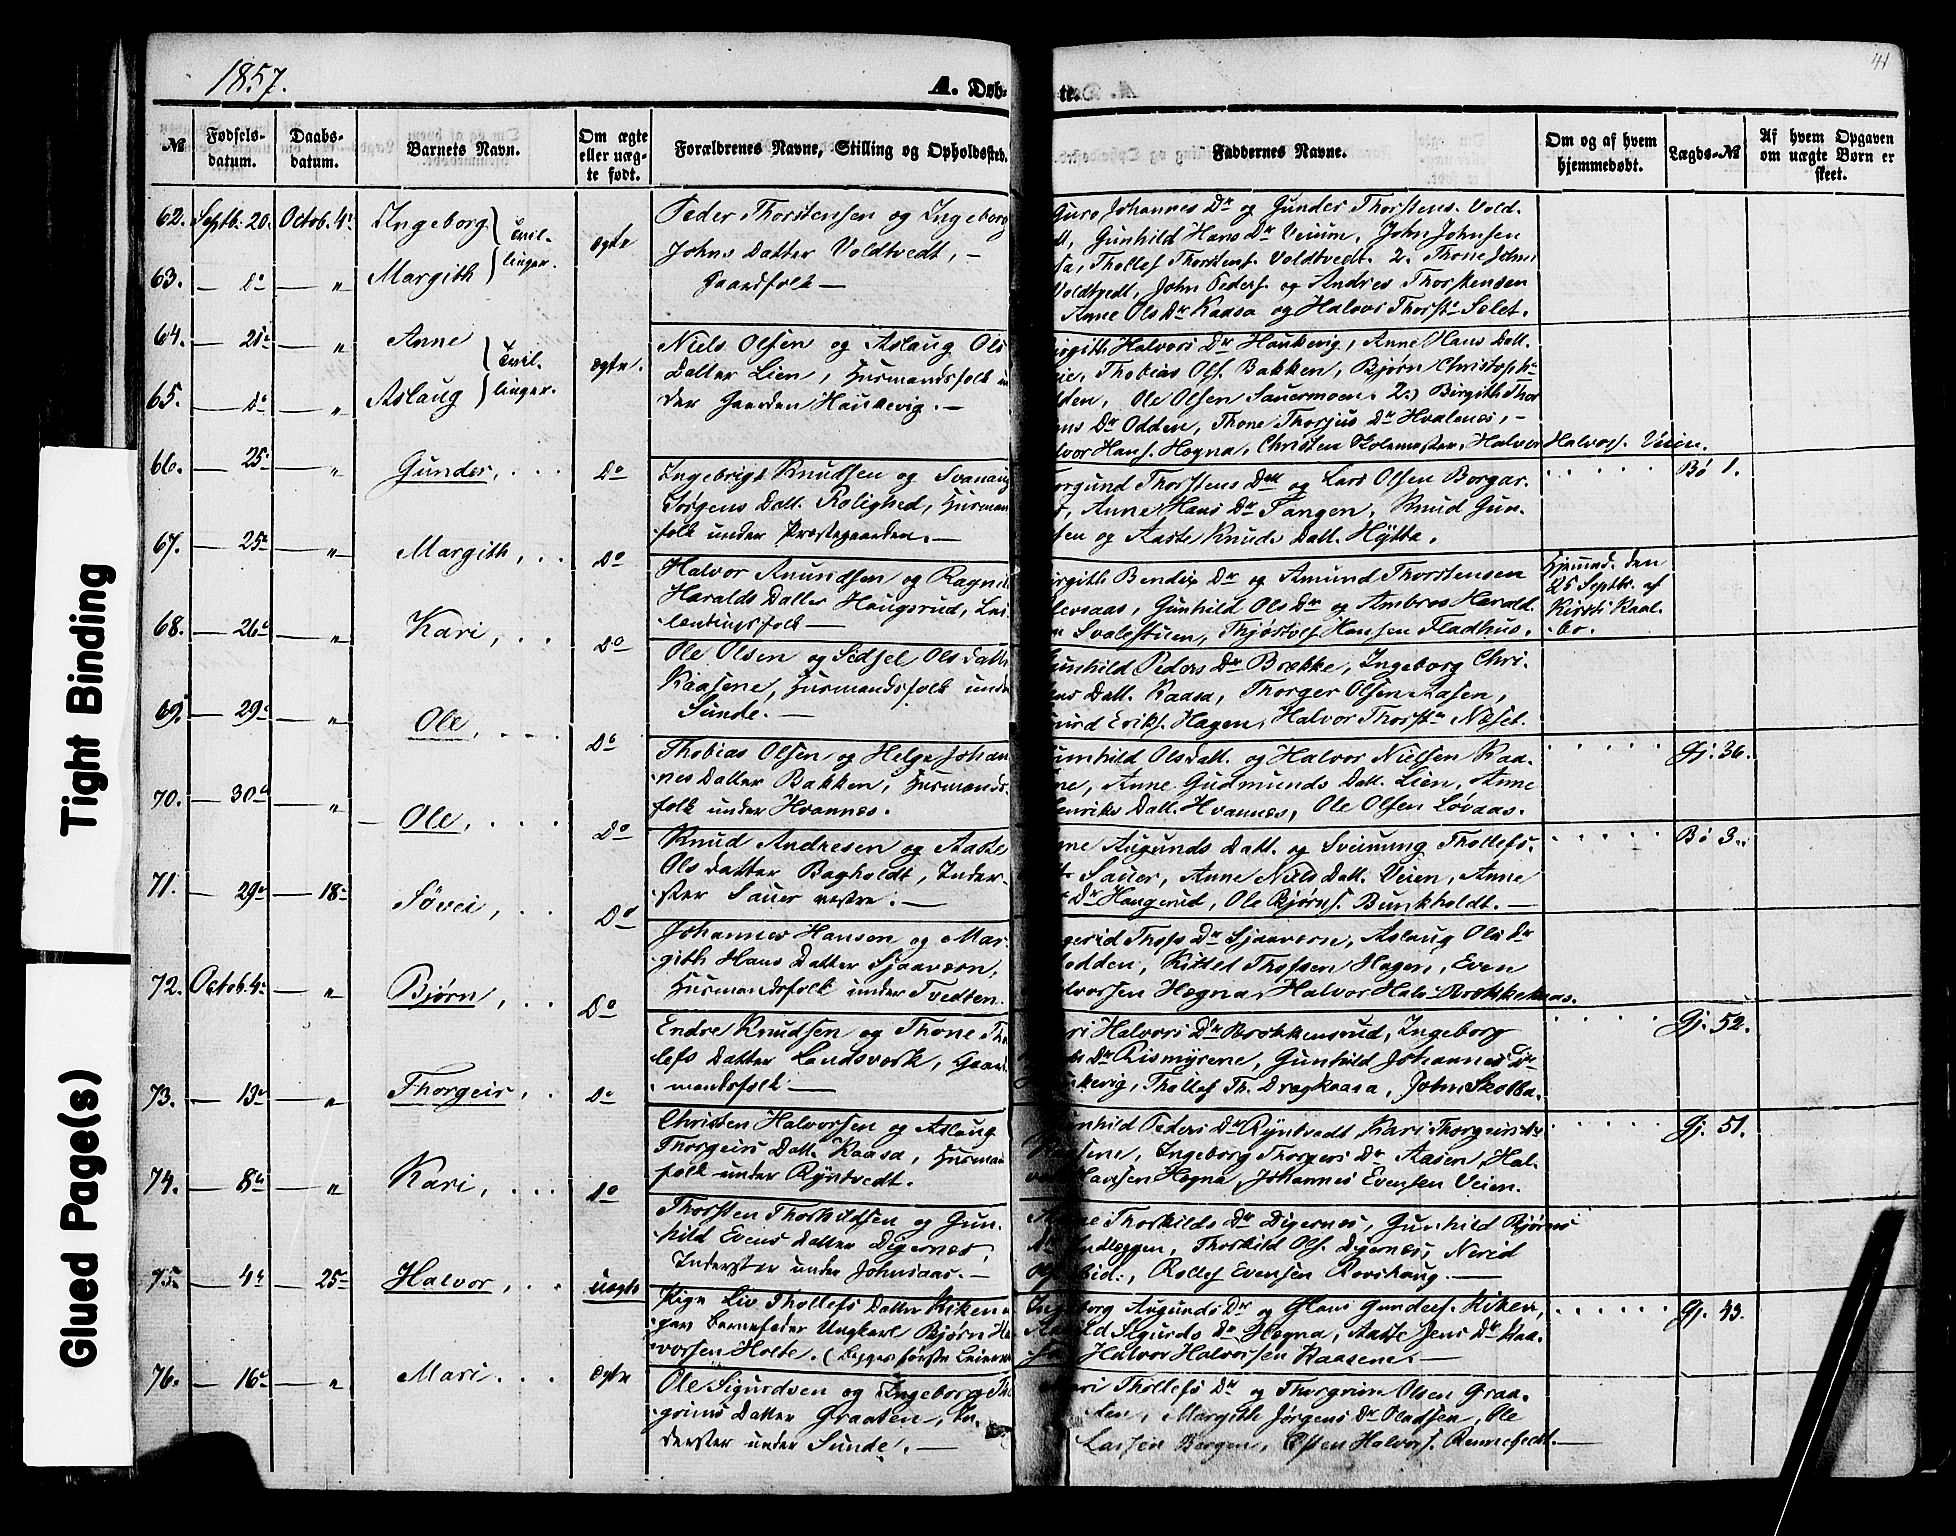 1857.
A. Døb-
te.
41
№
Fødsels-
datum.
Daabs-
datum.
Barnets Navn.
Om ægte
eller uæg-
te født.
Forældrenes Navne, Stilling og Opholdssted.
Faddernes Navne.
Om og af hvem
hjemmedøbt.
Lægds-№
Af hvem Opgaven
om uægte Børn er
skeet.
62. Septb. 20. Octob. 4. Ingeborg
63. — do — " Margith
Tvil-
linger.
ægte
Peder Thorstensen og Ingeborg
Johns Datter Voldtvedt, —
Gaardfolk —
Guro Johannes Dr og Gunder Thorstens. Vold-
Gunhild Hans Dr Veium, John Johnsen
Thollef Thorstens. Voldtvedt. 2. Thone Johns
Voldtvedt, John Peders. og Andres Thorstensen
Anne Ols Dr Kaasa og Halvor Thorst. Selet.
64. — 25 — " Anne
65. — do — " Aslaug
Tvil-
linger.
ægte.
Niels Olsen og Aslaug Ols
Datter Lien, Husmandsfolk un
der Gaarden Haukevig. —
Halvors Dr Haukevig, Anne Hans Datt.
Thobias Ols. Bakken, Bjørn Christoph.
Ole Olsen Sauermoen. 2.) Birgith Thor
Dr Odden, Thone Thorjus Dr Hvalenes, —
Hans. Hegna, Christen Skolemester, Halvor Halvors. Veien.
66. — 25 — " Gunder, . . .
do
Ingebrigt Knudsen og Svanaug
Jørgens Datt. Rolighed, Husman
folk under Præstegaarden. —
Thorstens Datt og Lars Olsen Borgar-
Anne Hans Dr Tangen, Knud Gun-
sen og Aaste Knuds Datt. Hytta.
Bø 1.
67. — 25 — " Margith, . .
do
Halvor Amundsen og Ragnil
Haralds Datter Haugsrud, Lei
lændingsfolk —
Bendix Dr og Amund Thorstensen
Gunhild Ols Dr og Ambros Harald-
Svalestuen, Thjøstolf Hansen Fladhus.
Hjemmed. den
25 Septbr. af
Kirsti Kaal-
bo.
68. — 26 — " Kari, . .
do
Ole Olsen og Sidsel Ols Datt
Kaasene, Husmandsfolk under
Sunde. —
Gunhild Peders Dr Brække, Ingeborg Chri-
Datt. Kaasa, Thorger Olsen Aasen,
Eriks. Hagen, Halvor Thorstn Næset.
69. — 29 — " Ole, . . . .
do
Thobias Olsen og Helge Johan
nes Datter Bakken, Husmands-
folk under Hvannes.
Gunhild Ols Datt. og Halvor Nielsen Kaa-
Anne Gudmunds Datt. Lien, Anne
Henriks Datt. Hvannes, Ole Olsen Løvaas.
Gj. 36.
70. — 30 — " Ole, . . . .
do
Knud Andresen og Aaste
Ols Datter Bagholdt, Inder-
ster Sauer vestre. —
Augunds Datt. og Sveinung Thollefs.
Sauer, Anne Niels Datt. Veien, Anne
Dr Haugerud, Ole Bjørns. Bunkholdt. —
Bø 3.
71. — 29 — 18 — Søvei, . .
do
Johannes Hansen og Mar-
gith Hans Datter Sjaavorn,
Husmandsfolk under Tvedten.
Thofs Dr Sjaavorn, Aslaug Ols Dr
Kittel Thofsen Hagen, Even
Halvorsen Hegna, Halvor Hals. Brekkenaas.
72. Octob. 4. — " Bjørn, . .
do
Endre Knudsen og Thone Tho
lefs Datter Landsverk, Gaard
mandsfolk —
Halvors Dr Brokkensrud, Ingeborg
Dr Rismyrene, Gunhild Johannes Dr
Thollef Th. Dragkaasa, John Skolba.
Gj. 52.
73. — 13 — " Thorgeir, .
do
Christen Halvorsen og Aslaug
Thorgeirs Datt. Kaasa, Husman
folk under Ryntvedt.
Gunhild Peders Dr Ryntvedt, Kari Thorgeirs Dr
Ingeborg Thorgers Dr Aasen, Hal-
Hansen Hegna, Johannes Evensen Veien.
Gj. 51.
74. — 8 — " Kari, . . .
do
Thorsten Thorkildsen og Gun-
hild Evens Datter Digernes,
Inderster under Johnsaas. —
Thorkilds Dr Digernes, Gunhild Bjørns
Thorkild Ols. Digernes, Nerid
Rollef Evensen Rorshaug. —
75. — 4 — 25 — Halvor, . .
uægte
Pige Liv Thollefs Datter Riken
Barnefader Ungkarl Bjørn Ha
vorsen Holte. (Begges første Leierm
Ingeborg Augunds Dr og Hans Gunders. Riken,
Sigurds Dr Hegna, Aaste Jens Dr Kaa-
Halvor Halvorsen Kaasene. —
Gj. 43.
76. — 16 — " Mari. . . .
ægte
Ole Sigurdsen og Ingeborg Th
grims Datter Graaten, In-
derster under Sunde. —
Thollefs Dr og Thorgrim Olsen Graa-
Margith Jørgens Dr Oladsen, Ole
Larsen Borgen, Østen Halvors. Rennefedt. —
Tight Binding
Glued Page(s)